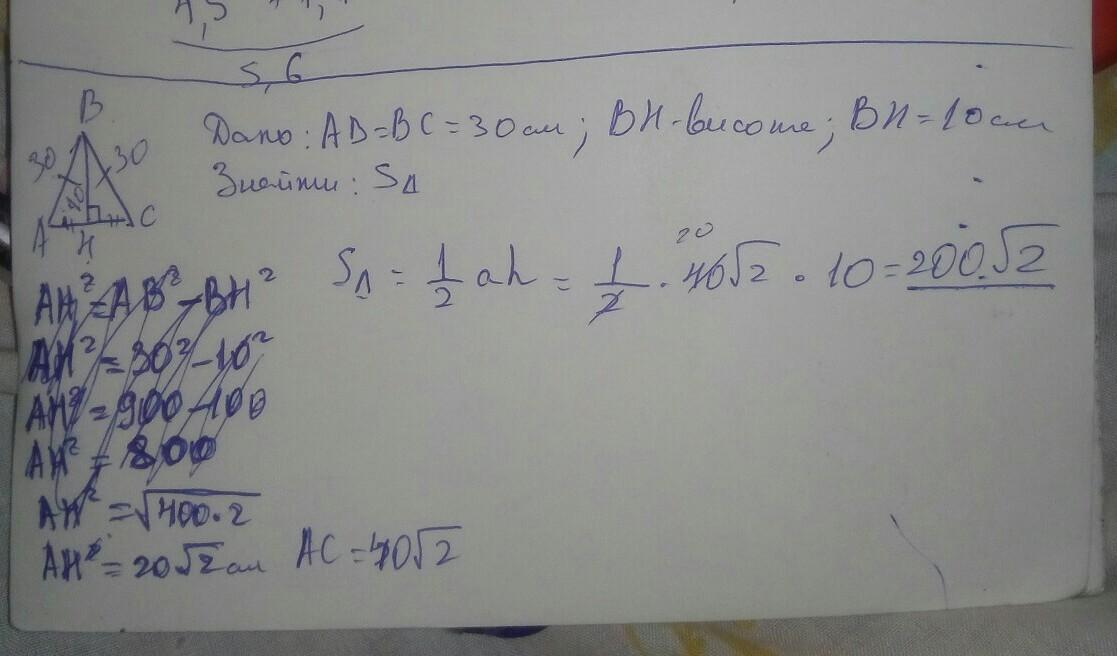 5,6
B
30 30
10
A H C
Дано: AB=BC=30см; BH-висота; BH=10см
Знайти: S△
S△ = 1/2 ah = 1/2 · 40√2 · 10 = 200√2
20
AH²=AB²-BH²
AH²=30²-10²
AH²=900-100
AH²=800
AH²=√400·2
AH²=20√2см AC=40√2